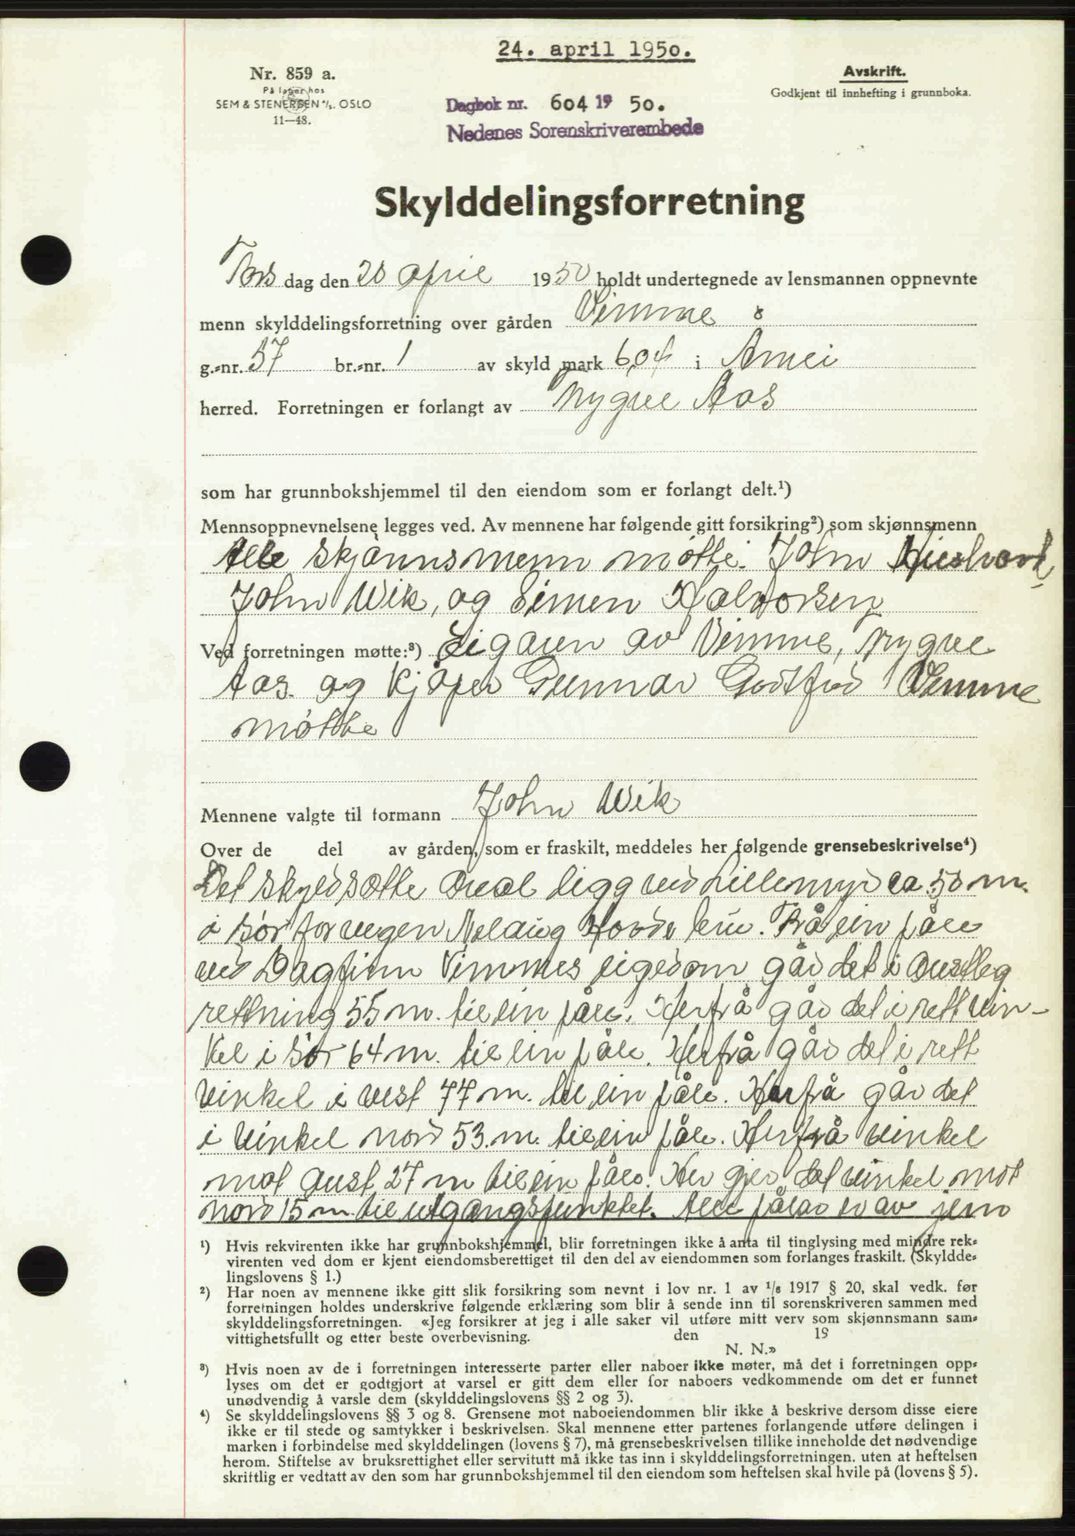 24. april 1950.
Nr. 859 a.
På lager hos
SEM & STENERSEN A/S. OSLO
11—48.
Avskrift.
Godkjent til innhefting i grunnboka.
Dagbok nr. 604 19 50.
Nedenes Sorenskriverembede
Skylddelingsforretning
Tors dag den 20 april 1950 holdt undertegnede av lensmannen oppnevnte
menn skylddelingsforretning over gården Vimme
g.-nr. 57 br.-nr. 1 av skyld mark 6,04 i Åmli
herred. Forretningen er forlangt av Trygve Aas
som har grunnbokshjemmel til den eiendom som er forlangt delt.¹)
Mennsoppnevnelsene legges ved. Av mennene har følgende gitt forsikring²) som skjønnsmenn
Alle skjønnsmenn møtte. John
John Wik, og Simen Halvorsen
Ved forretningen møtte:³) Eigaren av Vimme, Trygve
Aas og kjøper Gunnar Godtfred Vimme
møtte
Mennene valgte til formann John Wik
Over de del av gården, som er fraskilt, meddeles her følgende grensebeskrivelse⁴)
Det skyldsette areal ligg ved Lillemyr ca 50 m.
i sør for vegen Nelaug Hovde. Frå ein påle
ved Dagfinn Vimmes eigedom går det i austleg
rettning 55 m. til ein påle. Herfrå går det i rett vin-
kel i sør 64 m. til ein påle. Herfrå går det i rett
vinkel i vest 77 m. til ein påle. Herfrå går det
i vinkel nord 53. m. til ein påle. Herfrå vinkel
mot aust 27 m til ein påle. Her gjer det vinkel mot
nord 15 m. til utgangspunktet. Alle pålar er av jern
¹) Hvis rekvirenten ikke har grunnbokshjemmel, blir forretningen ikke å anta til tinglysing med mindre rek-
virenten ved dom er kjent eiendomsberettiget til den del av eiendommen som forlanges fraskilt. (Skylddel-
lingslovens § 1.)
²) Har noen av mennene ikke gitt slik forsikring som nevnt i lov nr. 1 av ¹/₈ 1917 § 20, skal vedk. før
forretningen holdes underskrive følgende erklæring som blir å sende inn til sorenskriveren sammen med
skylddelingsforretningen. «Jeg forsikrer at jeg i alle saker vil utføre mitt verv som skjønnsmann sam-
vittighetsfullt og etter beste overbevisning. den 19
N. N.»
³) Hvis noen av de i forretningen interesserte parter eller naboer ikke møter, må det i forretningen opp-
lyses om det er godtgjort at varsel er gitt dem eller for naboers vedkommende om det er funnet
unødvendig å varsle dem (skylddelingslovens §§ 2 og 3).
⁴) Se skylddelingslovens §§ 3 og 8. Grensene mot naboeiendommen blir ikke å beskrive dersom disse eiere
ikke er til stede og samtykker i beskrivelsen. Skal mennene etter partenes forlangende utføre delingen i
marken i forbindelse med skylddelingen (lovens § 7), må grensebeskrivelsen tillike inneholde det nødvendige
herom. Stiftelse av bruksrettighet eller servitutt må ikke tas inn i skylddelingsforretningen. uten at heftelsen
skriftlig er vedtatt av den som har grunnbokshjemmel til den eiendom som heftelsen skal hvile på (lovens § 5).